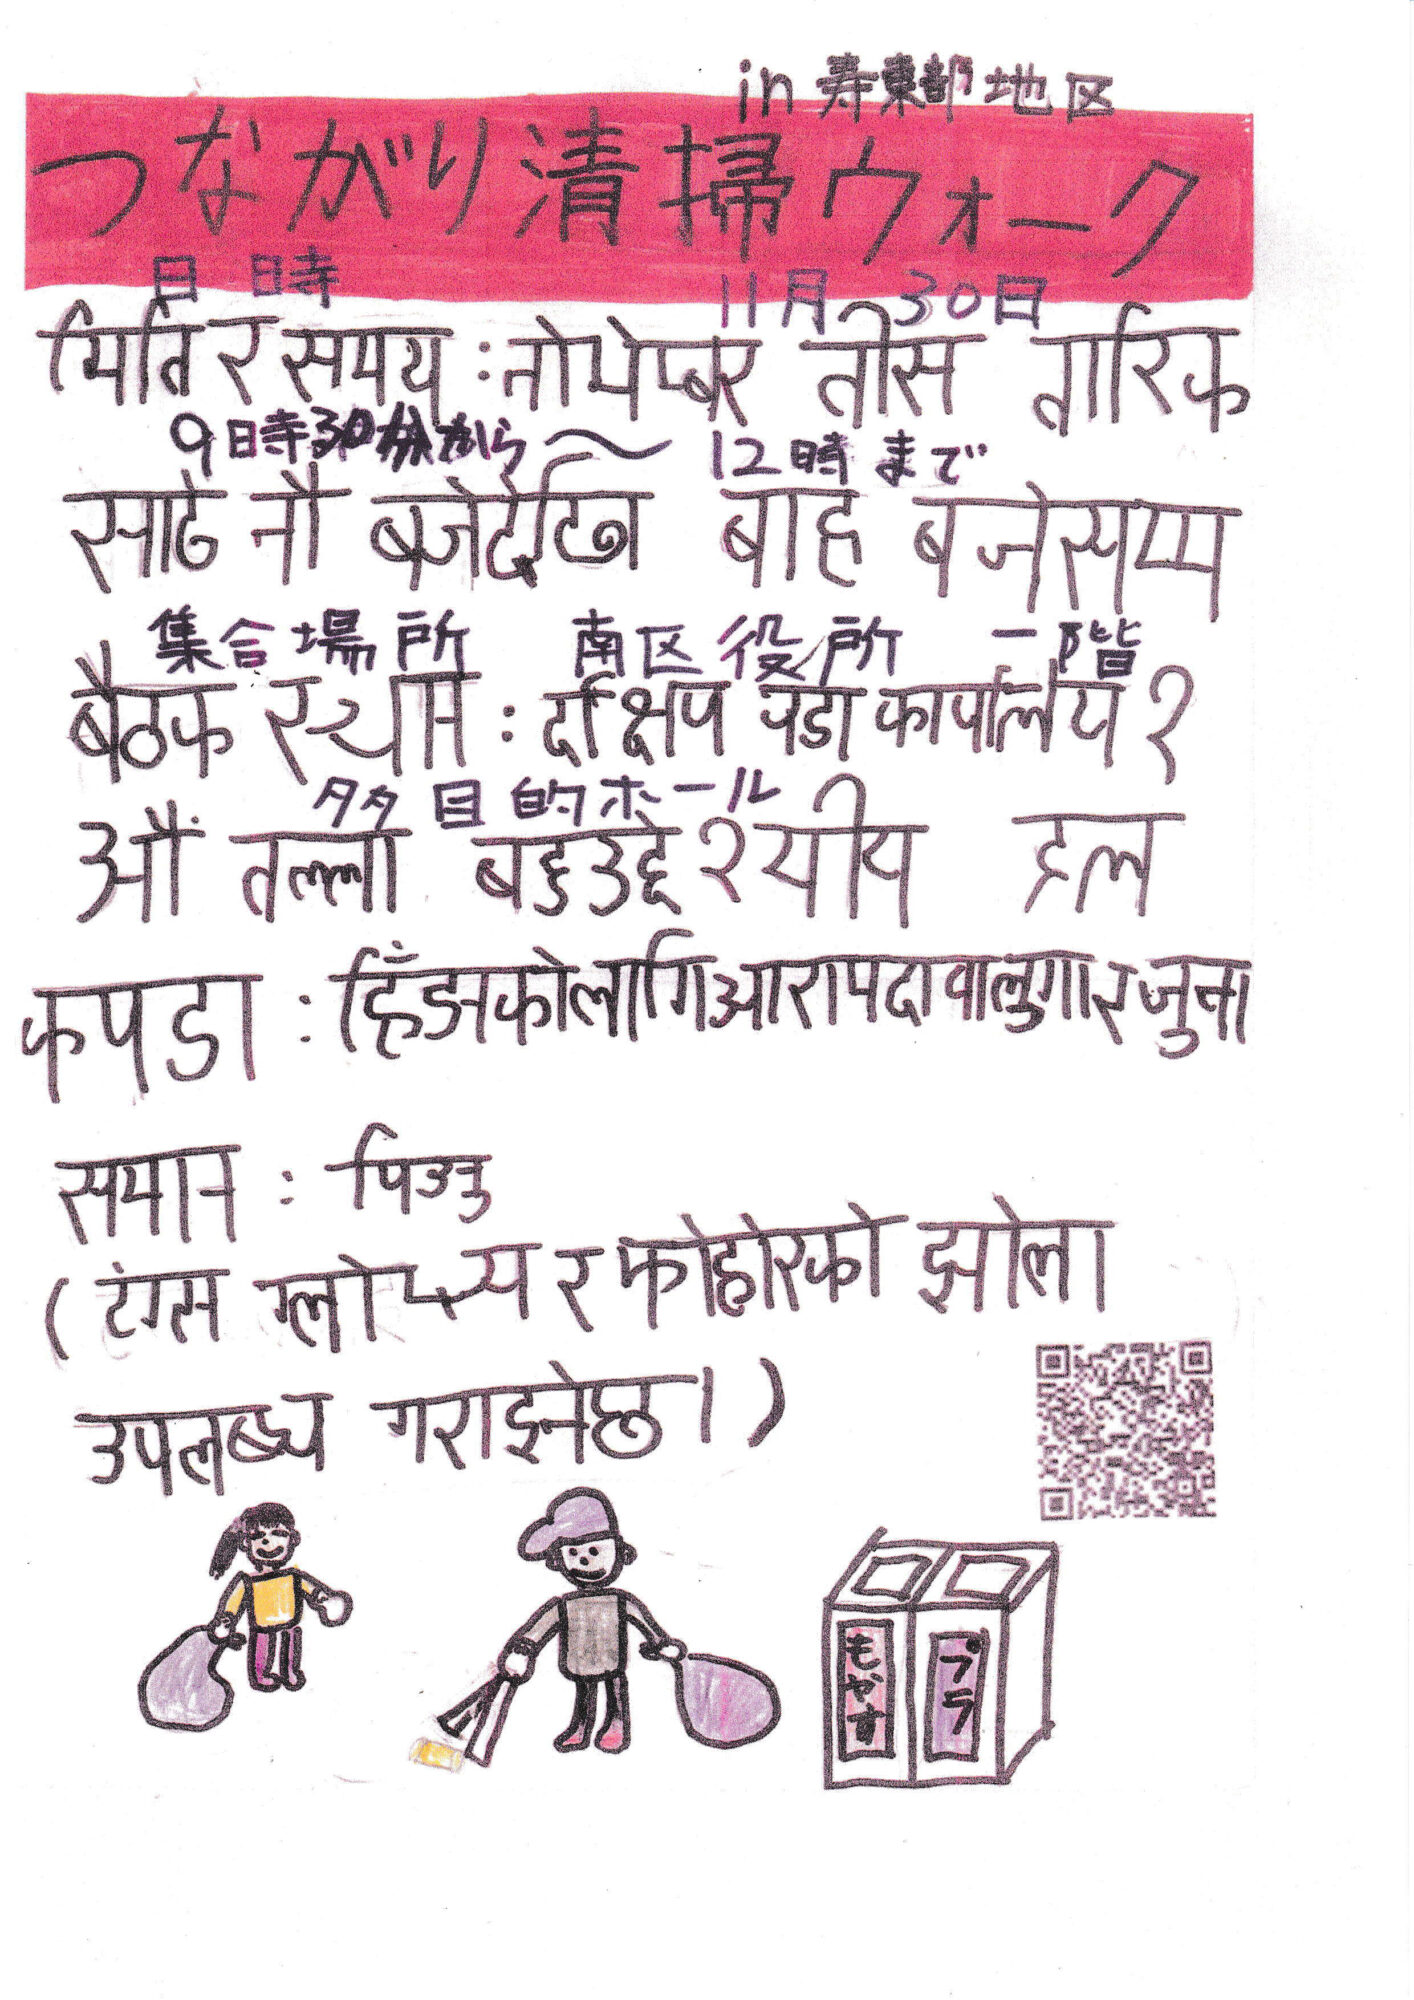 in 寿東部地区
つながり清掃ウォーク
日時 11月 30日
मिति र समय : नोभेम्बर तीस तारिक
9時30分から 〜 12時まで
साढे नौ बजेदेखि बाह्र बजेसम्म
集合場所 南区役所 一階
बैठक स्थान : दक्षिण वडा कार्यालय १
多目的ホール
औं तल्ला बहुउद्देश्यीय हल
कपडा : हिँड्नकोलागि आरामदायी लुगा र जुत्ता
समान : पिउनु
( टंग्स ग्लोभ्स र फोहोरको झोला
उपलब्ध गराइनेछ । )
もやす
プラ